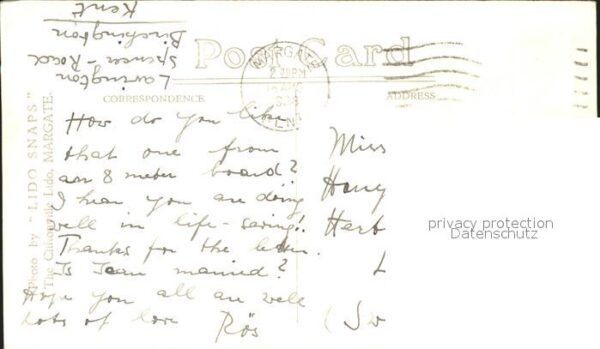 Lavington
Spencer - Road
Birchington
Kent
Post Card
MARGATE
2 PM
KENT
CORRESPONDENCE
ADDRESS
How do you like
that one from
an 8 meter board?
I hear you are doing
well in life-saving!!
Thanks for the letter.
Is Jean married?
Hope you all are well
Lots of love Rös
Miss
Herb
(Sw
Photo by "LIDO SNAPS"
The Cliftonville Lido, MARGATE.
privacy protection
Datenschutz